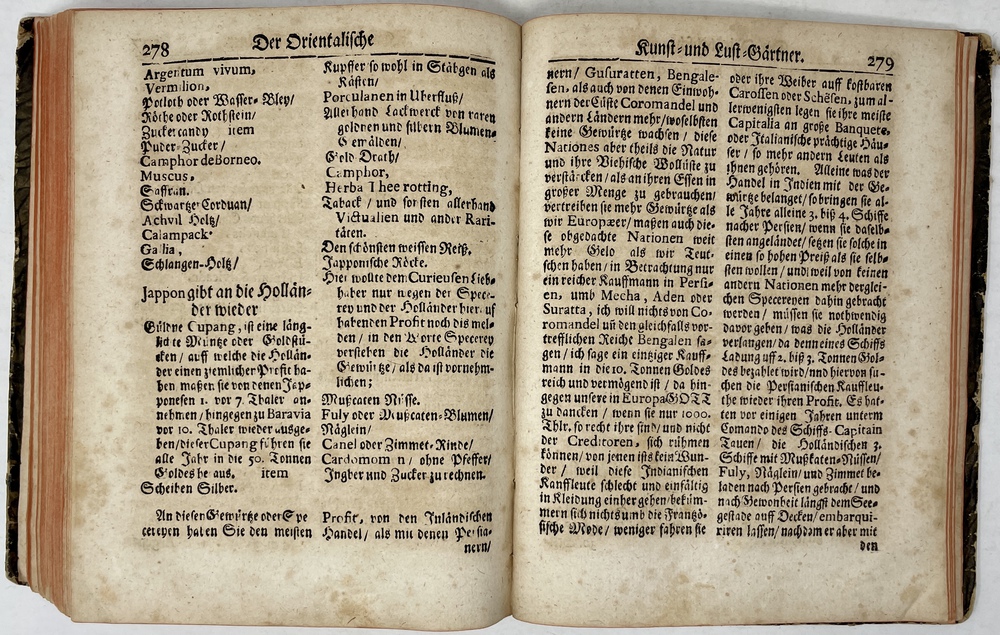 278
Der Orientalische
Argentum vivum,
Vermilion,
Potloth oder Wasser-Bley/
Röthe oder Rothstein/
Zuckercandy item
Puder-Zucker/
Camphor de Borneo.
Muscus,
Saffran.
Schwartze Corduan/
Achvil Holtz/
Calampack
Gallia,
Schlangen-Holtz/
Jappon gibt an die Hollän-
der wieder
Güldne Cupang, ist eine läng-
lichte Müntze oder Goldstü-
cken/ auff welche die Hollän-
der einen ziemlicher Profit ha-
ben maßen sie von denen Jap-
ponesen 1. vor 7. Thaler an-
nehmen/ hingegen zu Baravia
vor 10. Thaler wieder ausge-
ben/ dieser Cupang führen sie
alle Jahr in die 50. Tonnen
Goldes heraus. item
Scheiben Silber.
Kupffer so wohl in Stäbgen als
Kästen/
Porculanen in Uberfluß/
Allerhand Lackwerck von raren
goldnen und silbern Blumen-
Gemälden/
Gold Drath/
Camphor,
Herba Thee rotting,
Taback/ und sonsten allerhand
Victualien und ander Rari-
täten.
Den schönsten weissen Reiß.
Japponische Röcke.
Hier wollte dem Curieusen Lieb-
haber nur wegen der Spece-
rey und der Holländer hierauf
habenden Profit noch dis mel-
den/ in den Worte Specerey
verstehen die Holländer die
Gewürtze/ als da ist vornehm-
lichen;
Mußcaten Nüsse.
Fuly oder Mußcaten-Blumen/
Näglein/
Canel oder Zimmet-Rinde/
Cardomomen/ ohne Pfeffer/
Ingber und Zucker zu rechnen.
An diesen Gewürtze oder Spe
cereyen haben Sie den meisten
Profit, von den Inländischen
Handel/ als mit denen Persia-
nern/
Kunst- und Lust-Gärtner.
279
nern/ Gusuratten, Bengale-
sen, als auch von denen Einwoh-
nern der Cüste Coromandel und
andern Ländern mehr/ woselbsten
keine Gewürtze wachsen/ diese
Nationes aber theils die Natur
und ihre Viehische Wollüste zu
verstärcken/ als an ihren Essen in
großer Menge zu gebrauchen/
vertreiben sie mehr Gewürtze als
wir Europæer/ maßen auch die-
se obgedachte Nationen weit
mehr Gelo als wir Teut-
schen haben/ in Betrachtung nur
ein reicher Kauffmann in Persi-
en, umb Mecha, Aden oder
Suratta, ich will nichts von Co-
romandel uñ den gleichfalls vor-
trefflichen Reiche Bengalen sa-
gen/ ich sage ein eintziger Kauff-
mann in die 10. Tonnen Goldes
reich und vermögend ist/ da hin-
gegen unsere in Europa GOTT
zu dancken/ wenn sie nur 1000.
Thlr. so recht ihre sind/ und nicht
der Creditoren, sich rühmen
können/ von jenen ists kein Wun-
der/ weil diese Indianischen
Kauffleute schlecht und einfältig
in Kleidung einher gehen/ beküm-
mern sich nichts umb die Frantzö-
sische Mode/ weniger fahren sie
oder ihre Weiber auff kostbaren
Carossen oder Schesen, zum al-
lerwenigsten legen sie ihre meiste
Capitalia an große Banquete,
oder Italianische prächtige Häu-
ser/ so mehr andern Leuten als
ihnen gehören. Alleine was der
Handel in Indien mit der Ge-
würtze belanget/ so bringen sie al-
le Jahre alleine 3. biß 4. Schiffe
nacher Persien/ wenn sie daselb-
sten angeländet/ setzen sie solche in
einen so hohen Preiß als sie selb-
sten wollen/ und weil von keinen
andern Nationen mehr derglei-
chen Specereyen dahin gebracht
werden/ müssen sie nothwendig
davor geben/ was die Holländer
verlangen/ da denn eines Schiffs
Ladung uff 2. biß 3. Tonnen Gol-
des bezahlet wird/ und hiervon su-
chen die Persianischen Kauffleu-
the wieder ihren Profit. Es hat-
ten vor einigen Jahren unterm
Comando des Schiffs-Capitain
Tauen/ die Holländischen 3.
Schiffe mit Mußkaten-Nüssen/
Fuly, Näglein/ und Zimmet be-
laden nach Persien gebracht/ und
nach Gewonheit längst dem See-
gestade auff Decken/ embarqui-
riren lassen/ nachdem er aber mit
den